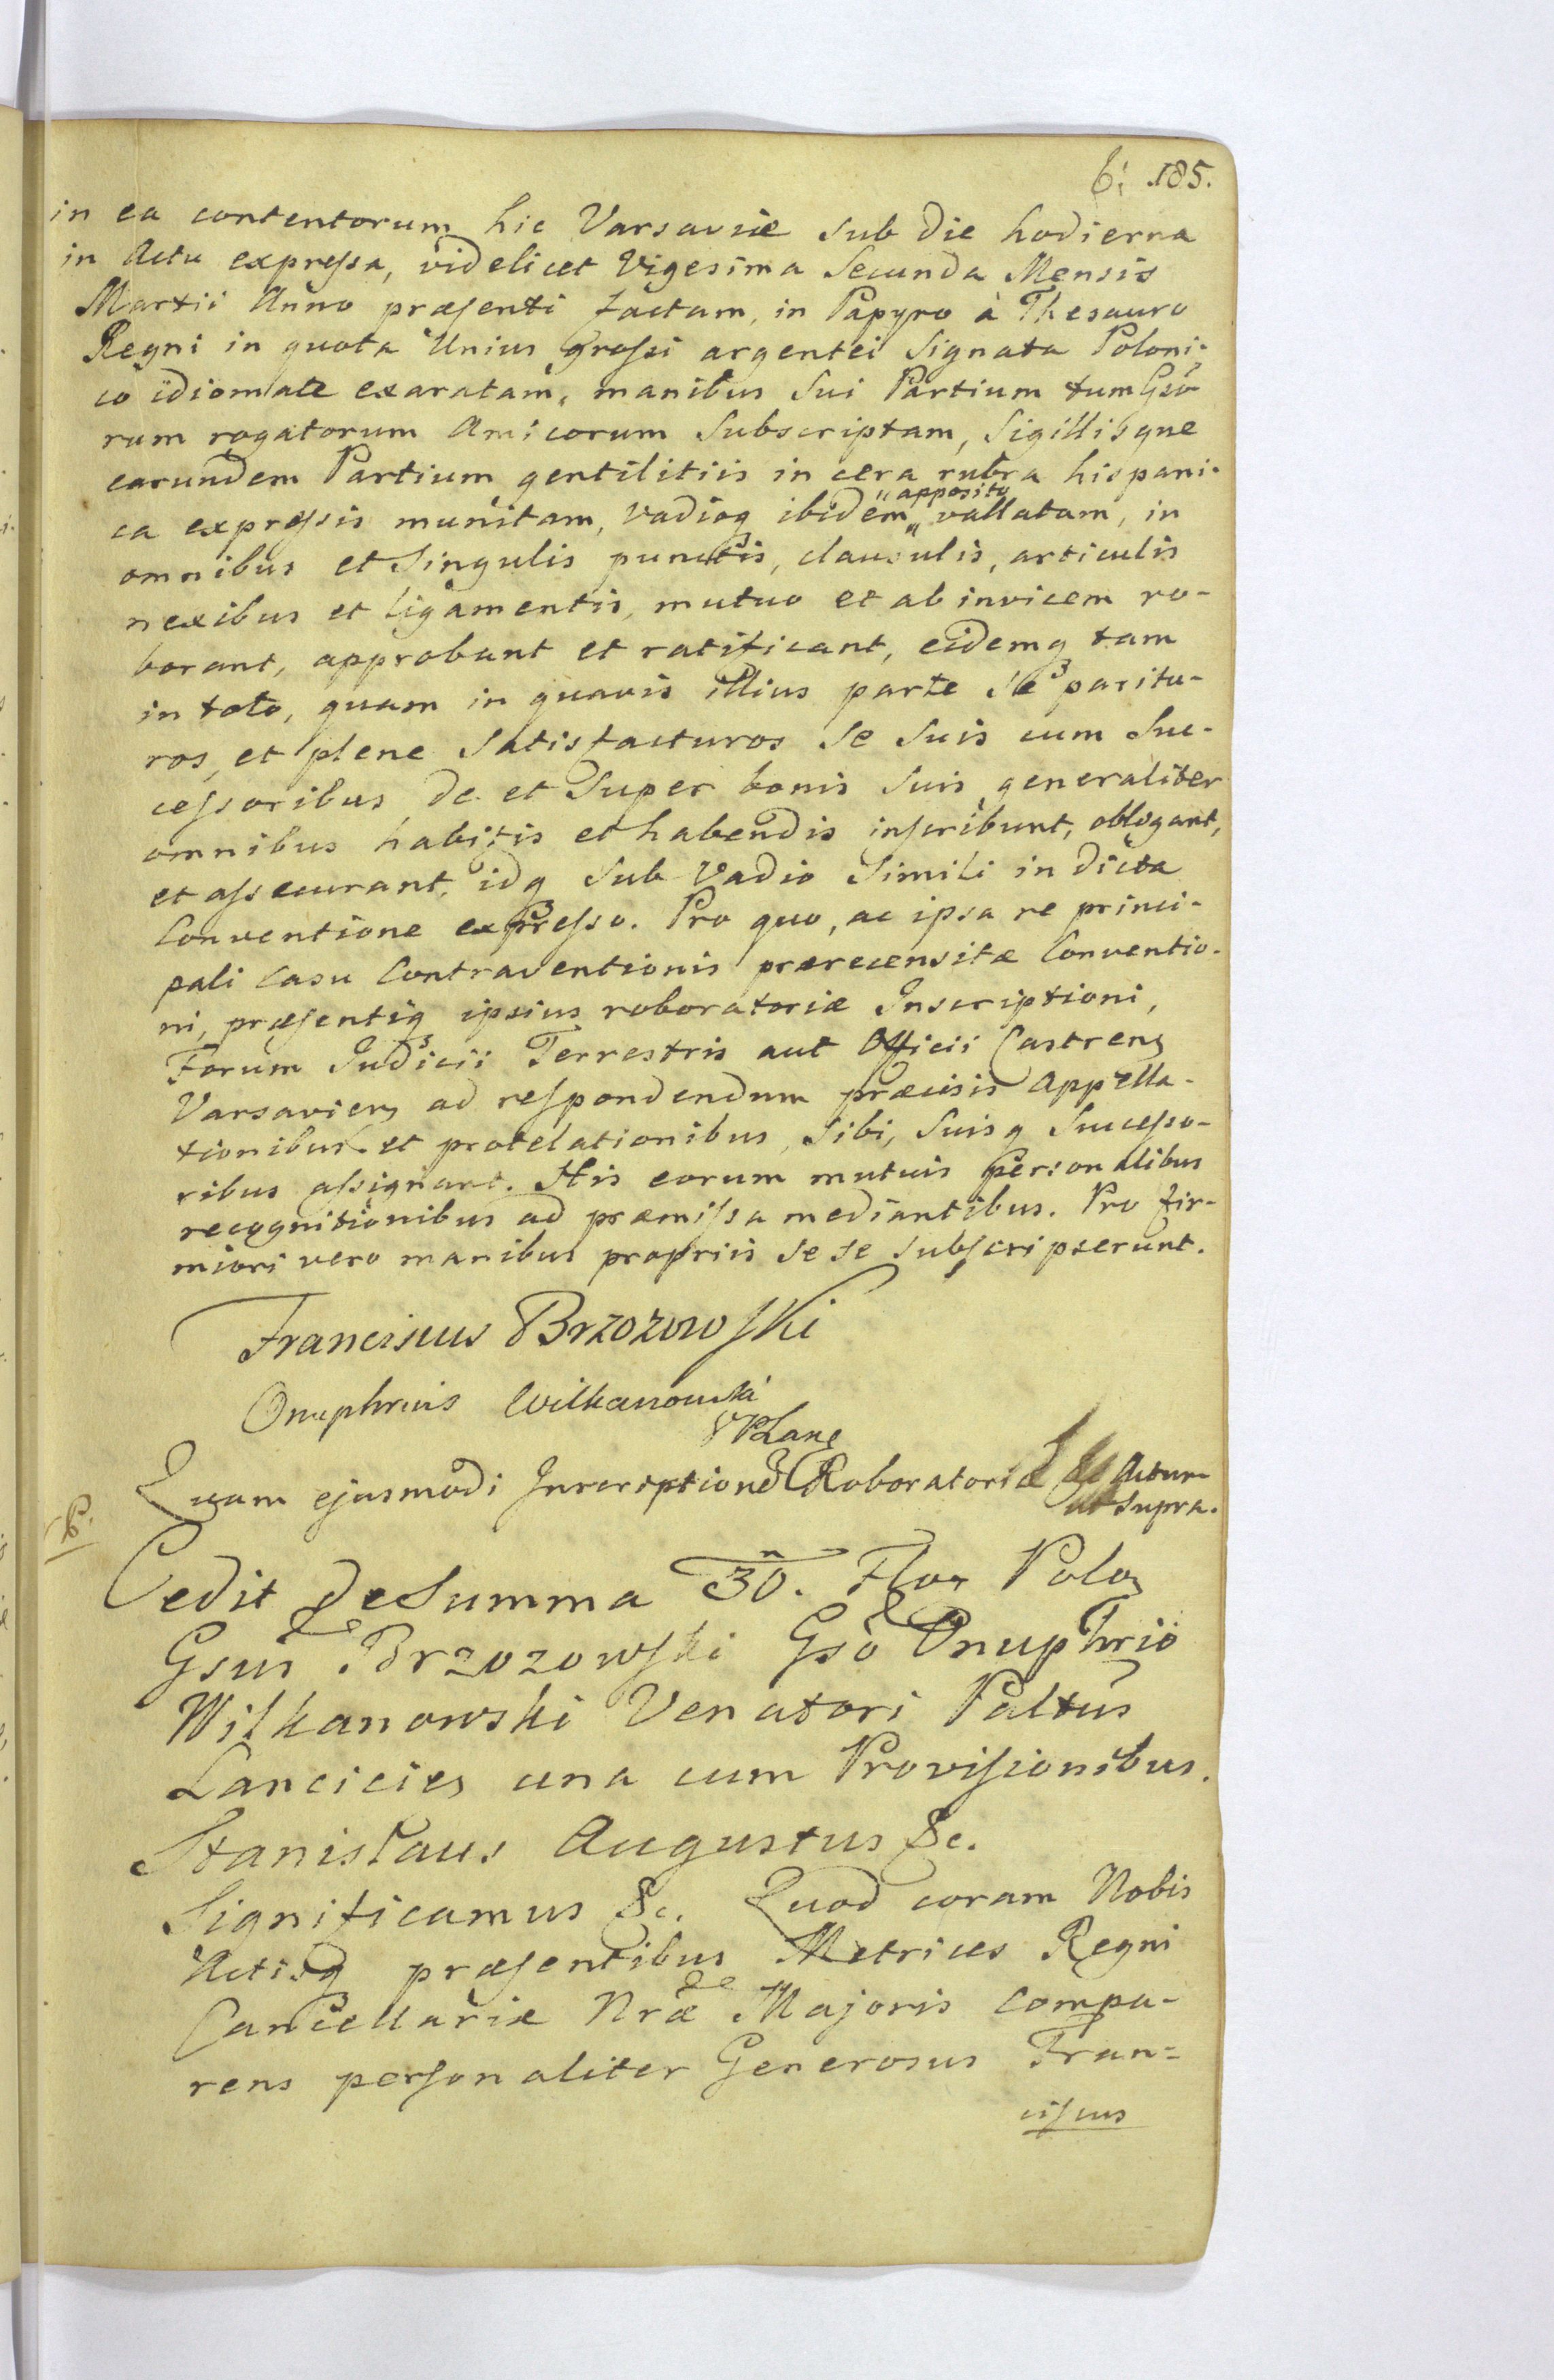 6: 185.
in ea contentorum hic Varsaviæ sub die hodierna
in Actu expressa, videlicet Vigesima Secunda Mensis
Martii Anno præsenti factam, in Papyro à Thesauro
Regni in quota Unius grossi argentei signata Poloni-
co idiomate exaratam, manibus sui Partium tum Gsō
rum rogatorum Amicorum subscriptam, Sigillisque
earundem Partium gentilitiis in cera rubra hispani-
ca expressis munitam, vadioq ibidem "apposito" vallatam, in
omnibus et singulis punctis, clausulis, articulis
nexibus et ligamentis, mutuo et ab invicem ro-
borant, approbant et ratificant, eidemq tam
in toto, quam in quavis illius parte se paritu-
ros, et plene satisfacturos se suis cum suc-
cessoribus de et super bonis suis generaliter
omnibus habitis et habendis inscribunt, obligant,
et assecurant, idq sub Vadio simili in dicta
Conventione expresso. Pro quo, ac ipsa re princi-
pali casu Contraventionis prærecensitæ Conventio-
ni, præsentiq ipsius roboratoriæ Inscriptioni,
Forum Judicii Terrestris aut Officii Castrens
Varsaviens ad respondendum præcisis Appella-
tionibus et protelationibus, sibi, suisq Successo-
ribus assignant. His eorum mutuis personalibus
recognitionibus ad præmissa mediantibus. Pro fir-
miori vero manibus propriis se se subscripserunt.
Franciscus Brzozowski
Onuphrius Wilkanowski
Quam ejusmodi Inscriptione Roboratoriæ Actum
ut supra.
Cedit de Summa 30. Flor Polon
Gsus Brzozowski Gsō Onuphrio
Wilkanowski Venatori Paltūs
Lancicies una cum Provisionibus.
Stanislaus Augustus &c.
Significamus &c. Quod coram Nobis
Actisq præsentibus Metrices Regni
Cancellariæ Nræ Majoris compa-
rens personaliter Generosus Fran=
ciscus